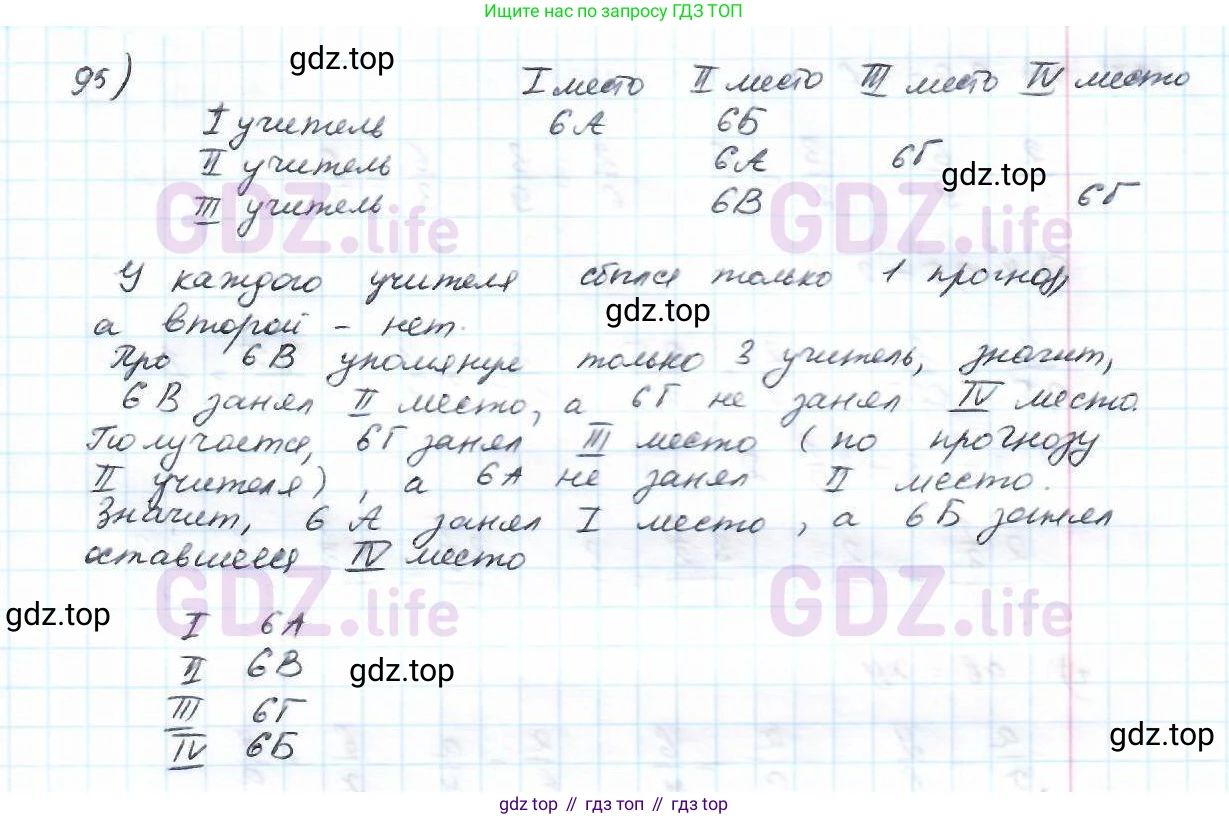 Ищите нас по запросу ГДЗ ТОП
95)
gdz.top
I место II место III место IV место
I учитель 6А 6Б
II учитель 6А 6Г
gdz.top
III учитель 6В 6Г
GDZ.life GDZ.life
У каждого учителя сбылся только 1 прогноз,
gdz.top
а второй - нет.
Про 6В упомянул только 3 учитель, значит,
6В занял II место, а 6Г не занял IV место.
Получается, 6Г занял III место (по прогнозу
II учителя), а 6А не занял II место.
Значит, 6А занял I место, а 6Б занял
оставшееся IV место
GDZ.life GDZ.life
gdz.top
I 6А
II 6В
gdz.top
III 6Г
gdz.top
IV 6Б
gdz top // гдз топ // гдз top